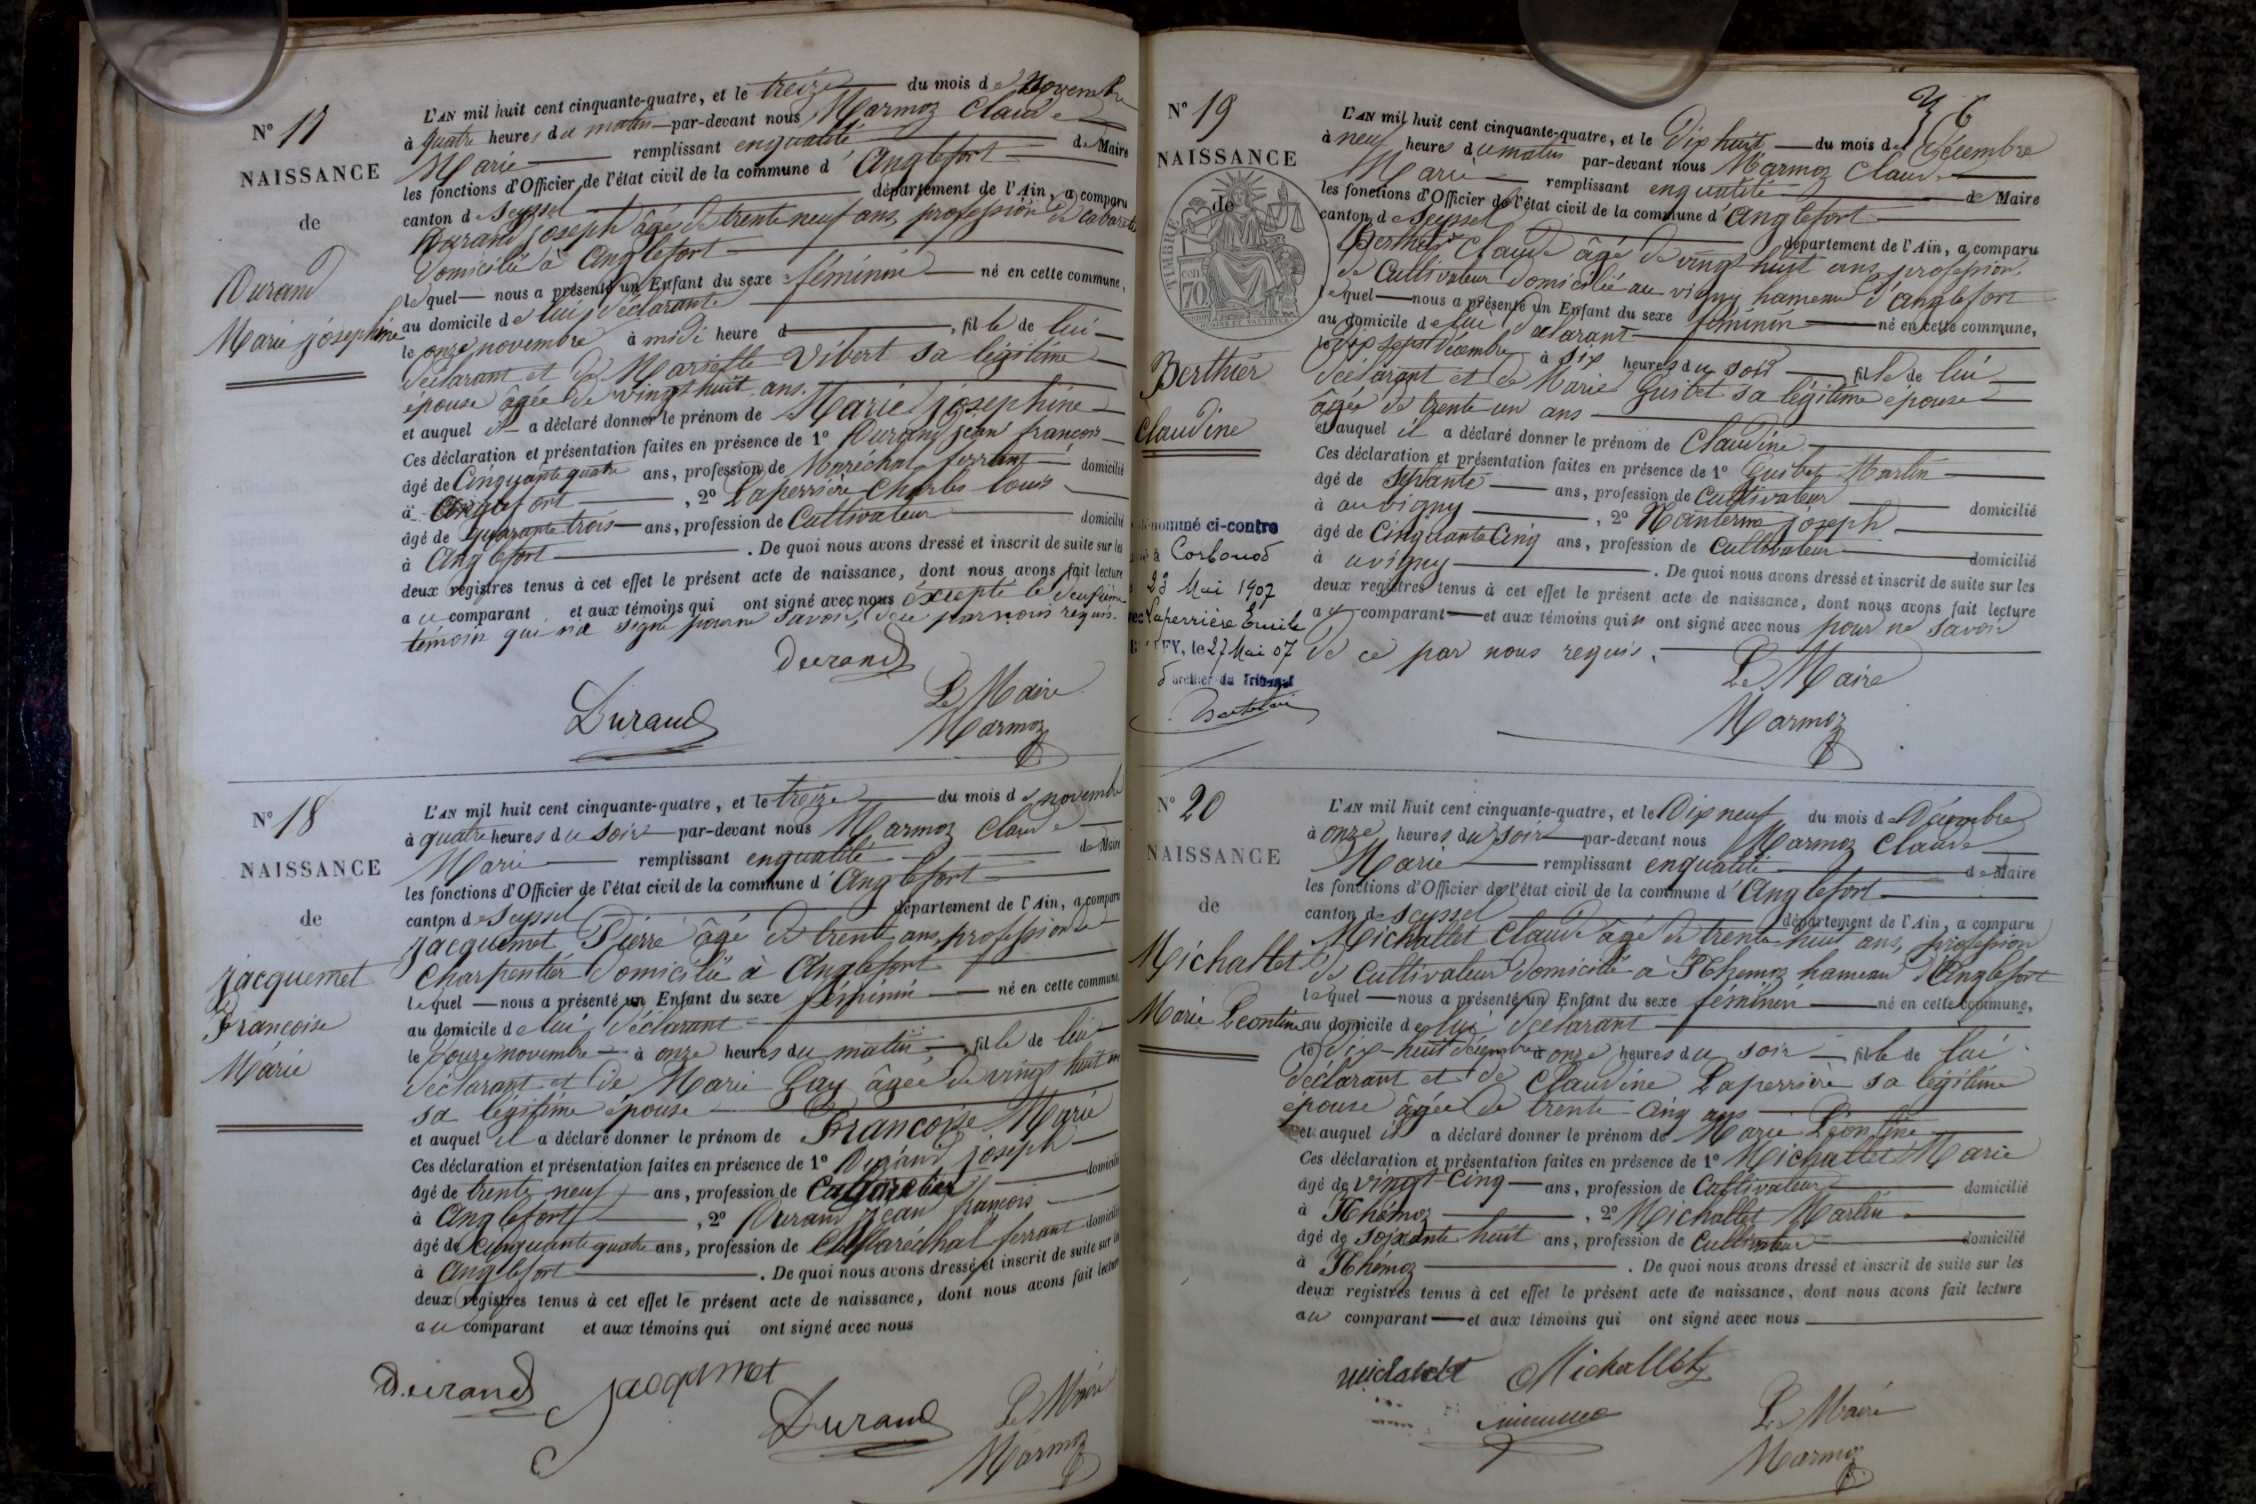 N° 17
NAISSANCE
de
Durand
Marie joséphine
L'AN mil huit cent cinquante-quatre, et le treize du mois de Novembre
à quatre heures du matin par-devant nous Marmoz Claude
Marie remplissant enqualité de Maire
les fonctions d'Officier de l'état civil de la commune d'Anglefort
canton de Seyssel département de l'Ain, a comparu
Durand joseph âgé de trente neuf ans, profession de
domicilié à Anglefort
lequel nous a présenté un Enfant du sexe féminin né en cette commune,
au domicile de lui déclarant
le onze novembre à midi heure d , fille de lui
déclarant et de Mariette Vibert sa légitime
épouse âgée de vingt huit ans.
et auquel il a déclaré donner le prénom de Marie joséphine
Ces déclaration et présentation faites en présence de 1° Durand jean françois
âgé de Cinquante quatre ans, profession de Maréchal ferrant domicilié
à Anglefort , 2° Laperrière Charles louis
âgé de quarante trois ans, profession de Cultivateur domicilié
à Anglefort . De quoi nous avons dressé et inscrit de suite sur les
deux registres tenus à cet effet le présent acte de naissance, dont nous avons fait lecture
au comparant et aux témoins qui ont signé avec nous excepté le deuxième
témoin qui n'a signé pour ne savoir, de ce par nous requis.
Durand
Durand
Le Maire
Marmoz
N° 18
NAISSANCE
de
jacquemet
Françoise
Marie
L'AN mil huit cent cinquante-quatre, et le treize du mois de novembre
à quatre heures du soir par-devant nous Marmoz Claude
Marie remplissant enqualité de Maire
les fonctions d'Officier de l'état civil de la commune d'Anglefort
canton de Seyssel département de l'Ain, a comparu
jacquemet Pierre âgé de trente ans, profession de
Charpentier domicilié à Anglefort
lequel nous a présenté un Enfant du sexe féminin né en cette commune,
au domicile de lui déclarant
le douze novembre à onze heures du matin, fille de lui
déclarant et de Marie Gay âgée de vingt huit ans
sa légitime épouse
et auquel il a déclaré donner le prénom de Françoise Marie
Ces déclaration et présentation faites en présence de 1° Durand joseph
âgé de trente neuf ans, profession de domicilié
à Anglefort , 2° Durand jean françois
âgé de cinquante quatre ans, profession de Maréchal ferrant domicilié
à Anglefort . De quoi nous avons dressé et inscrit de suite sur les
deux registres tenus à cet effet le présent acte de naissance, dont nous avons fait lecture
au comparant et aux témoins qui ont signé avec nous
Durand jacqumet
Durand
Le Maire
Marmoz
N° 19
NAISSANCE
de
TIMBRE
70
Berthier
Claudine
dénommé ci-contre
à Corbonod
23 Mai 1907
Laperrière Emile
EY, le 27 Mai 07
Greffier du Tribunal
L'AN mil huit cent cinquante-quatre, et le Dix huit du mois de Décembre
à neuf heures du matin par-devant nous Marmoz Claude
Marie remplissant enqualité de Maire
les fonctions d'Officier de l'état civil de la commune d'Anglefort
canton de Seyssel département de l'Ain, a comparu
Berthier Claude âgé de vingt huit ans, profession
de Cultivateur domicilié au vigny hameau d'anglefort
lequel nous a présenté un Enfant du sexe féminin né en cette commune,
au domicile de lui déclarant
le dix sept décembre à six heures du soir, fille de lui
déclarant et de Marie Guibet sa légitime épouse
âgée de trente un ans
et auquel il a déclaré donner le prénom de Claudine
Ces déclaration et présentation faites en présence de 1° Guibet Martin
âgé de ans, profession de Cultivateur domicilié
à auvigny , 2° joseph
âgé de Cinquante Cinq ans, profession de Cultivateur domicilié
à avigny . De quoi nous avons dressé et inscrit de suite sur les
deux registres tenus à cet effet le présent acte de naissance, dont nous avons fait lecture
au comparant et aux témoins qui n ont signé avec nous pour ne savoir
de ce par nous requis.
Le Maire
Marmoz
N° 20
NAISSANCE
de
Michallet
Marie Leontine
L'AN mil huit cent cinquante-quatre, et le Dix neuf du mois de Décembre
à onze heures du soir par-devant nous Marmoz Claude
Marie remplissant enqualité de Maire
les fonctions d'Officier de l'état civil de la commune d'Anglefort
canton de Seyssel département de l'Ain, a comparu
Michallet Claude âgé de trente huit ans, profession
de Cultivateur domicilié a hameau d'Anglefort
lequel nous a présenté un Enfant du sexe féminin né en cette commune,
au domicile de lui déclarant
le dix-huit décembre à onze heures du soir, fille de lui
déclarant et de Claudine Laperrière sa légitime
épouse âgée de trente cinq ans
et auquel il a déclaré donner le prénom de Marie Léontine
Ces déclaration et présentation faites en présence de 1° Michallet Marie
âgé de vingt-Cinq ans, profession de Cultivateur domicilié
à Thémoz , 2° Michallet Martin
âgé de soixante huit ans, profession de Cultivateur domicilié
à Thémoz . De quoi nous avons dressé et inscrit de suite sur les
deux registres tenus à cet effet le présent acte de naissance, dont nous avons fait lecture
au comparant et aux témoins qui ont signé avec nous
Michallet
Le Maire
Marmoz